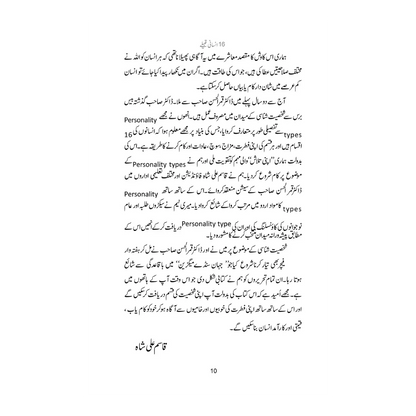 16 انسانی قبیلے
ہماری اس کاوش کا مقصد معاشرے میں یہ آگاہی پھیلانا تھی کہ ہر انسان کو اللہ نے
مختلف صلاحیتیں عطا کی ہیں، جو اس کی طاقت ہیں۔ اگر ان میں نکھار پیدا کیا جائے تو انسان
کم عرصے میں شان دار کامیابیاں حاصل کر سکتا ہے۔
آج سے دو سال پہلے میں ڈاکٹر قمر الحسن صاحب سے ملا۔ ڈاکٹر صاحب گذشتہ بیس
برس سے شخصیت شناسی کے میدان میں مصروفِ عمل ہیں۔ انھوں نے مجھے Personality
types سے تفصیلی طور پر متعارف کروایا، جس کی بنیاد پر مجھے معلوم ہوا کہ انسانوں کی 16
اقسام ہیں اور ہر قسم کی اپنی فطرت، مزاج، سوچ، عادات اور کام کرنے کا طریقہ ہے۔ اس کی
بدولت ہماری ”اپنی تلاش“ والی مہم کو تقویت ملی اور ہم نے Personality types کے
موضوع پر کام شروع کر دیا۔ ہم نے قاسم علی شاہ فاؤنڈیشن اور مختلف تعلیمی اداروں میں
ڈاکٹر قمر الحسن صاحب کے سیشن منعقد کروائے۔ اس کے ساتھ ساتھ Personality
types کا مواد اردو میں مرتب کروا کے شائع کروا دیا۔ میری ٹیم نے سیکڑوں طلبہ اور عام
نوجوانوں کی کاؤنسلنگ کی اور ان کی Personality type دریافت کر کے انھیں اس کے
مطابق پیشہ ورانہ میدان منتخب کرنے کا مشورہ دیا۔
شخصیت شناسی کے موضوع پر میں نے اور ڈاکٹر قمر الحسن صاحب نے مل کر ہفتہ وار
فیچر بھی تیار کرنا شروع کیا جو ”جہان سنڈے میگزین“ میں باقاعدگی سے شائع
ہوتا رہا۔ ان تمام تحریروں کو ہم نے کتابی شکل دی جو اس وقت آپ کے ہاتھوں میں
ہے۔ مجھے امید ہے کہ اس کتاب کی بدولت آپ اپنی شخصیت کی قسم دریافت کر سکیں گے
اور اس کے ساتھ ساتھ اپنی فطرت کی خوبیوں اور خامیوں سے آگاہ ہو کر خود کو کامیاب،
قیمتی اور کارآمد انسان بنا سکیں گے۔
قاسم علی شاہ
10